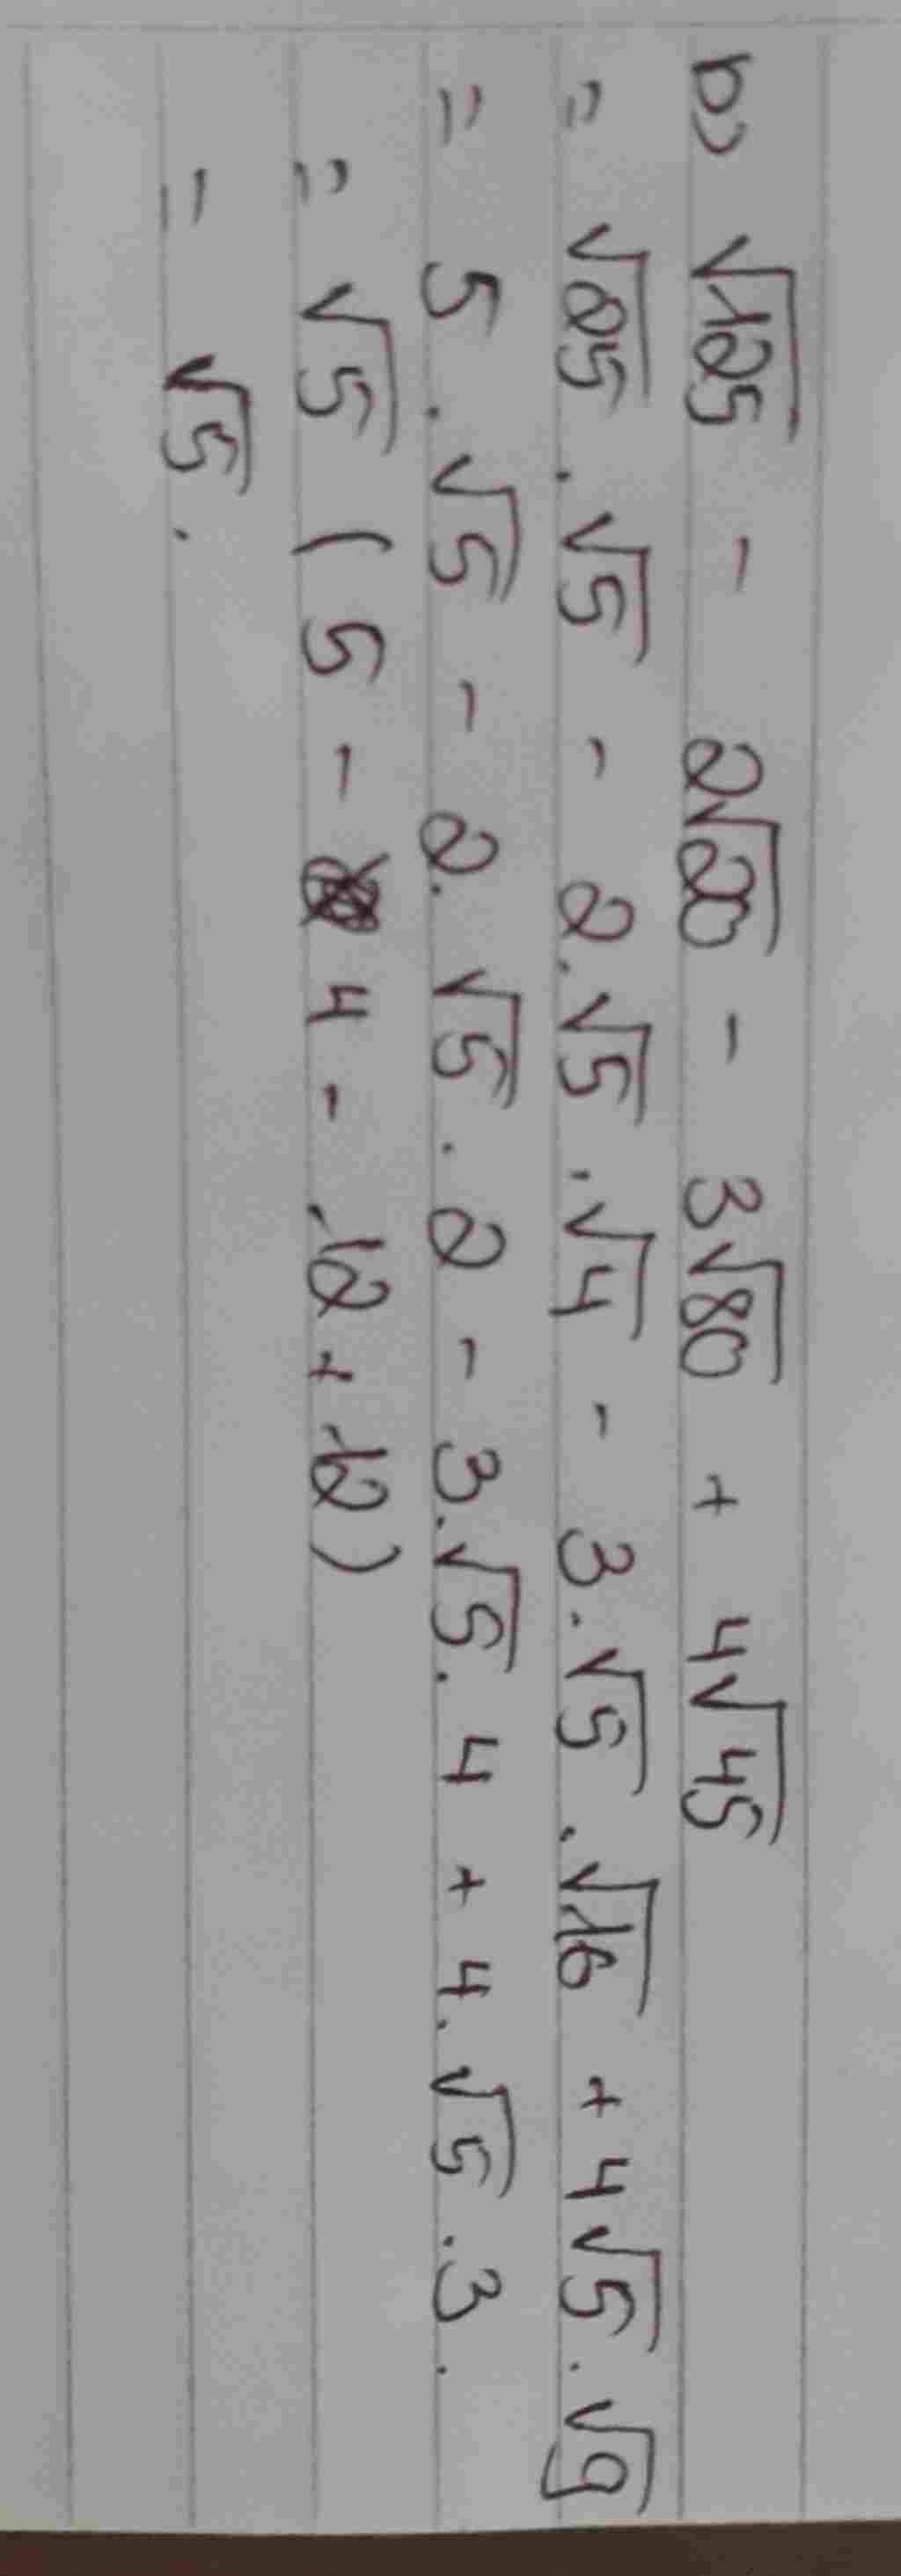 b) √125 - 2√20 - 3√80 + 4√45
= √25 . √5 - 2.√5 . √4 - 3.√5 . √16 + 4√5 . √9
= 5 . √5 - 2.√5 . 2 - 3.√5 . 4 + 4.√5 . 3 .
= √5 ( 5 - 4 - 12 + 12 )
= √5 .